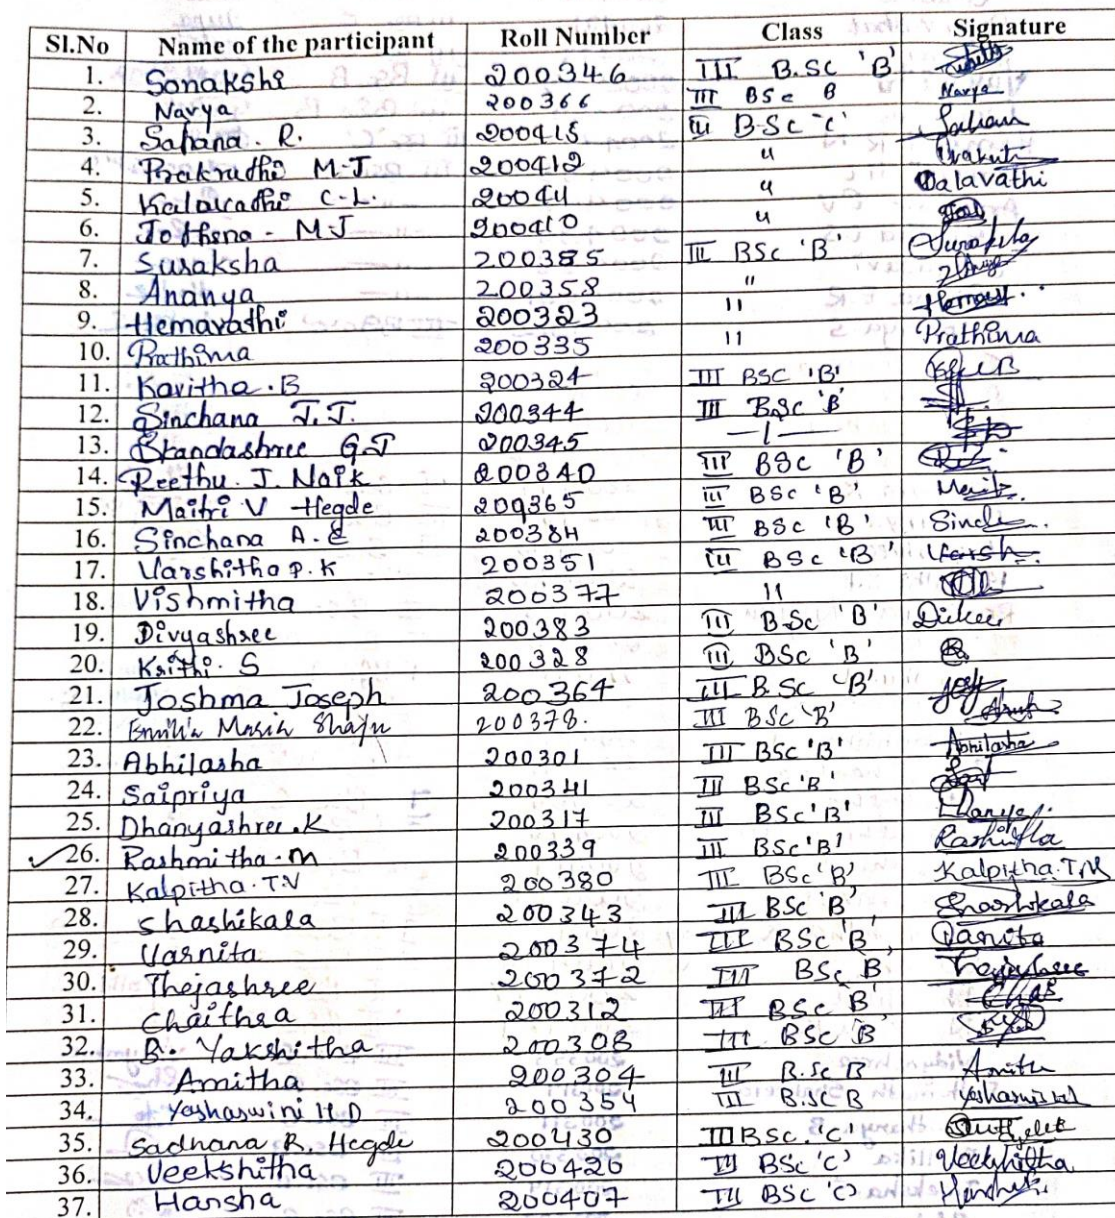 Sl.No Name of the participant Roll Number Class Signature
1. Sonakshi 200346 III B.Sc 'B'
2. Navya 200366 III BSc B Navya
3. Sahana. R. 200415 III B.Sc 'C' Sahana
4. Prakradhi M.J 200412 "
5. Kalavathi C.L. 20044 " Kalavathi
6. Jothsna - MJ 200410 "
7. Suraksha 200385 III BSc 'B' Suraksha
8. Ananya 200358 "
9. Hemavathi 200323 "
10. Prathima 200335 " Prathima
11. Kavitha.B 200324 III BSC 'B'
12. Sinchana J.J. 200344 III B.Sc 'B'
13. Skandashree G.J 200345 —1—
14. Reethu. J. Naik 200340 III BSc 'B'
15. Maitri V Hegde 200365 III BSc 'B'
16. Sinchana A. 200384 III BSc 'B'
17. Varshitha P.K 200351 III BSc 'B' Varsh
18. Vishmitha 200377 "
19. Divyashree 200383 III B.Sc 'B'
20. Krithi. S 200328 III BSc 'B'
21. Joshma Joseph 200364 III B.Sc 'B'
22. Shaju 200378. III BSc 'B'
23. Abhilasha 200301 III BSc 'B' Abhilasha
24. Saipriya 200341 III BSc 'B'
25. Dhanyashree.K 200317 III BSc 'B'
26. Rashmitha.M 200339 III BSc 'B' Rashmitha
27. Kalpitha.T.V 200380 III BSc 'B' Kalpitha.T.V
28. Shashikala 200343 III BSc 'B' Shashikala
29. Varnita 200374 III BSc 'B' Varnita
30. Thejashree 200372 III BSc B Thejashree
31. Chaithra 200312 III BSc 'B'
32. B. Yakshitha 200308 III BSc B
33. Amitha 200304 III B.Sc B
34. Yashaswini H.D 200354 III B.SC B
35. Sadhana R. Hegde 200430 III BSc. 'C'
36. Veekshitha 200426 III BSc 'C' Veekshitha
37. Harsha 200407 III BSC 'C'